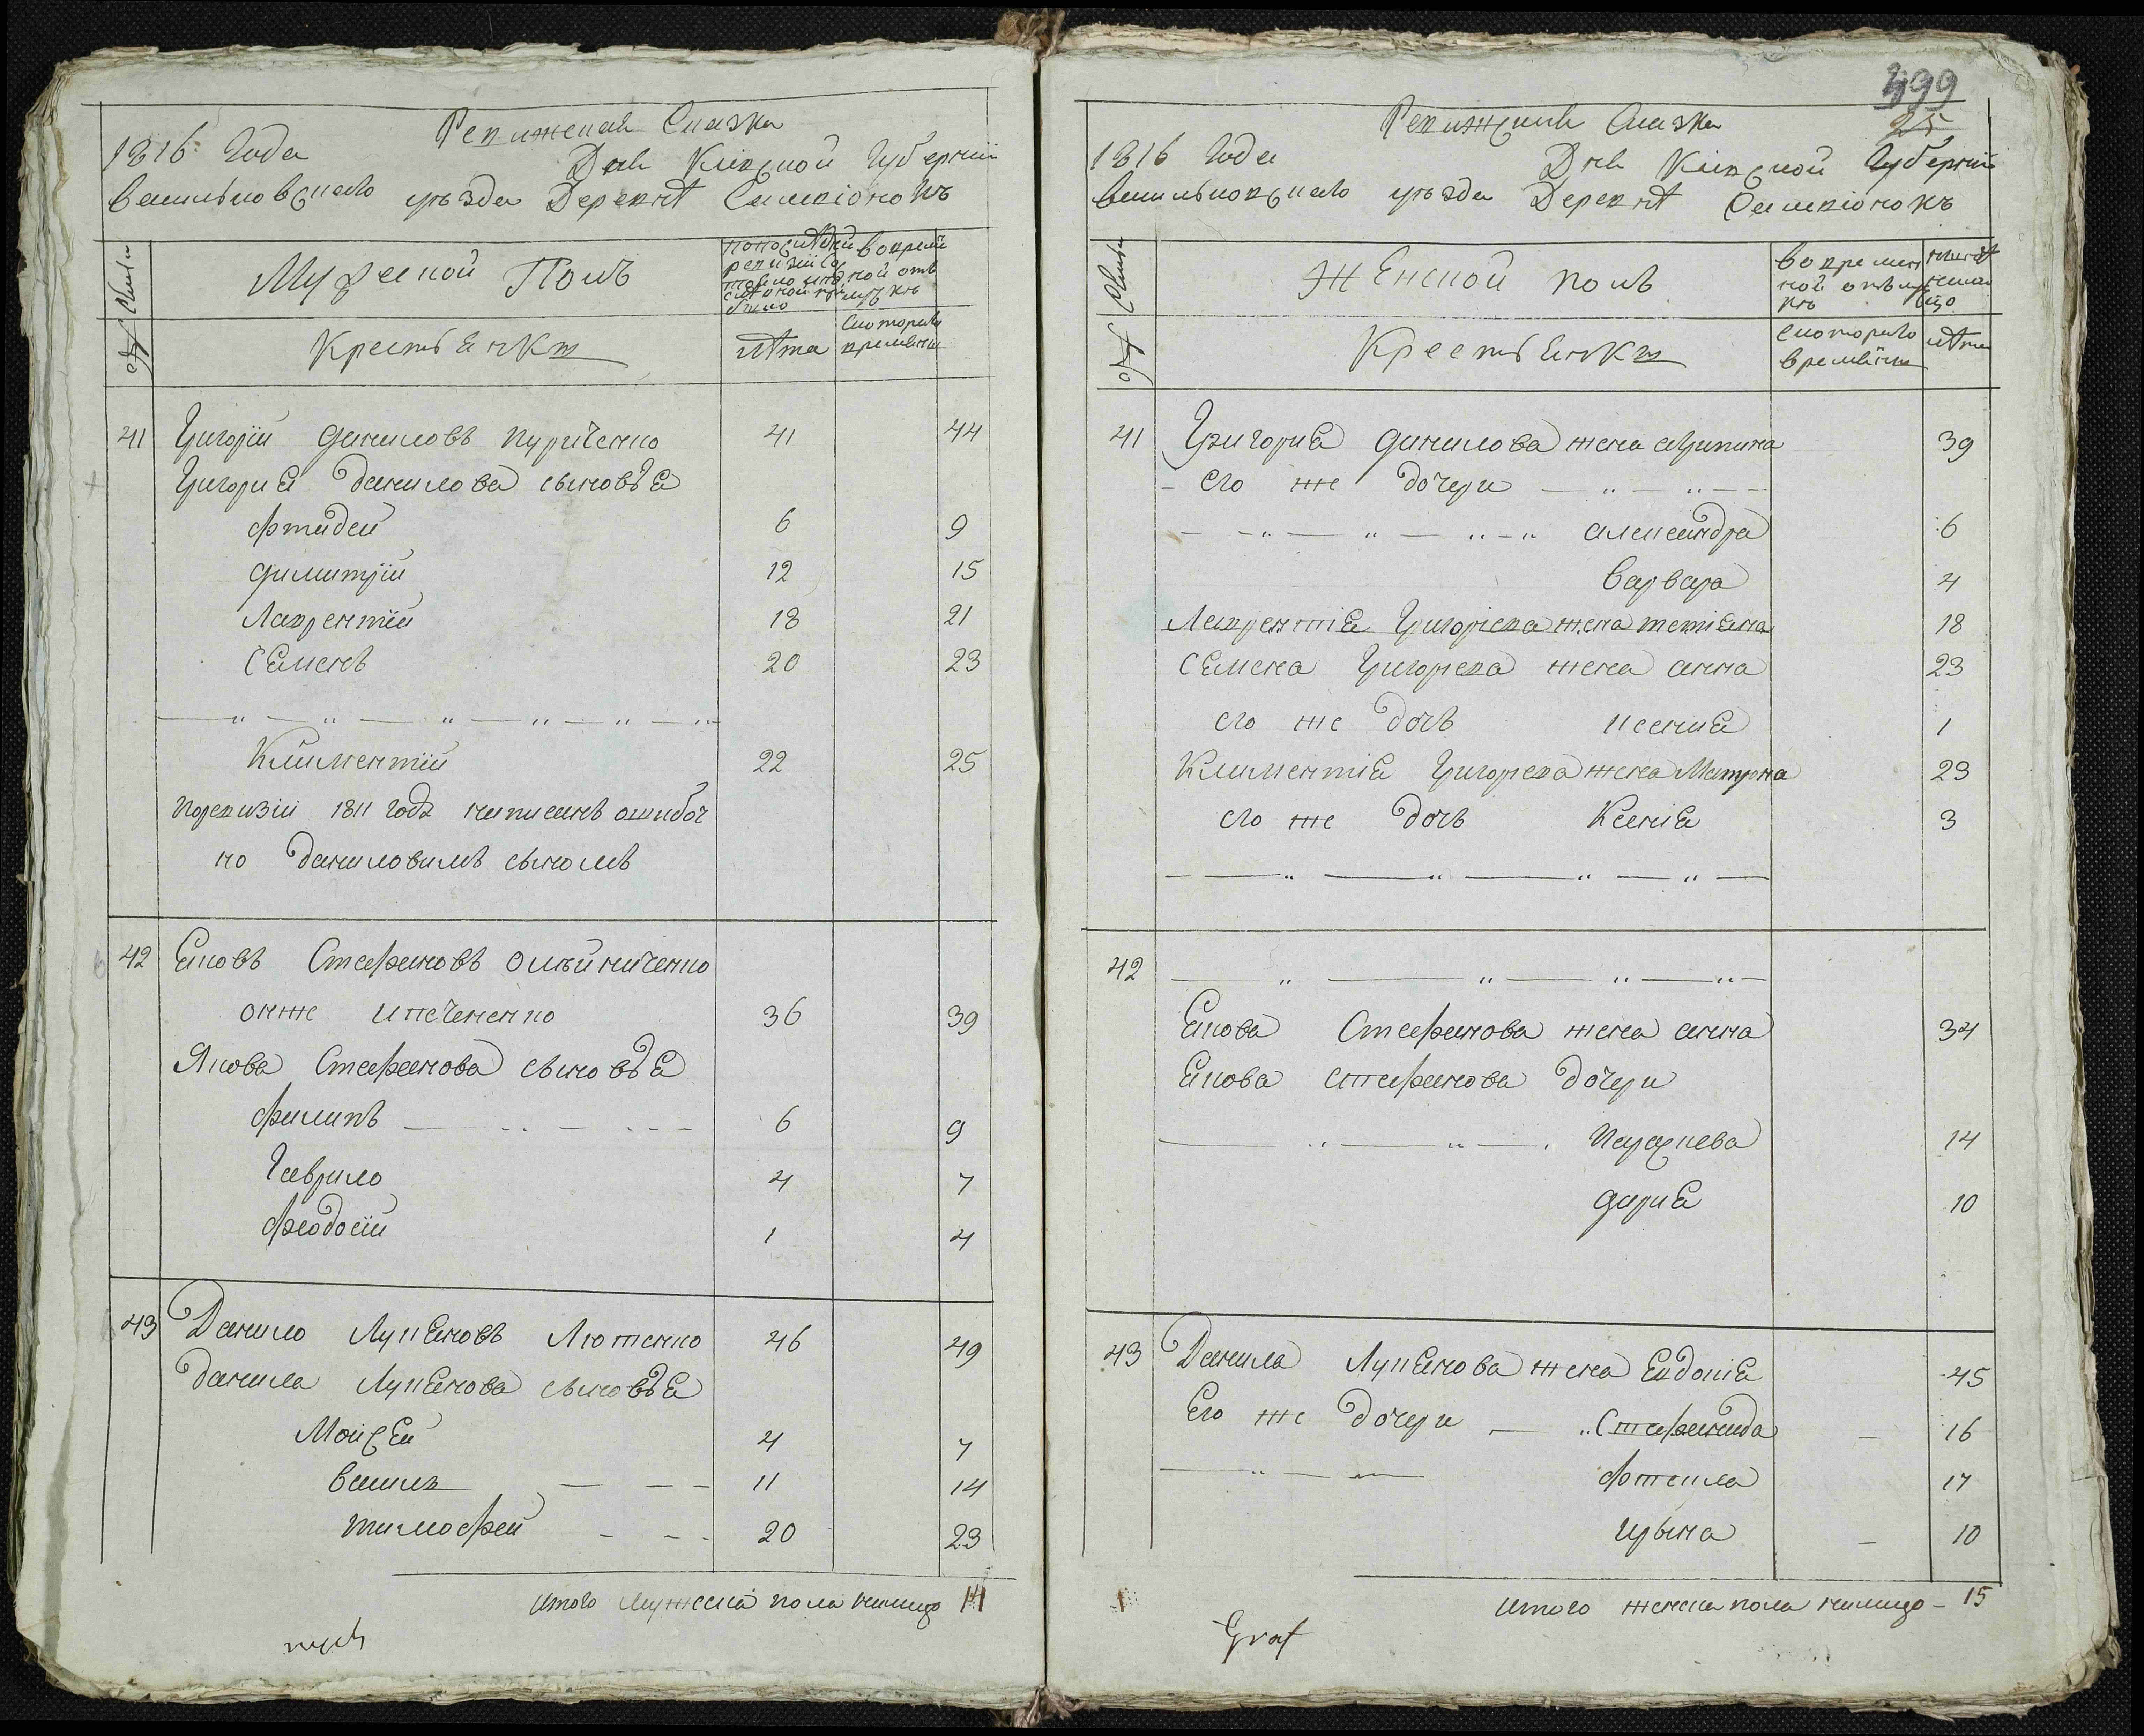 Ревижская Сказка
1816 Года Дня Кіевской Губерніи
васильковскаго уѣзда Деревнѣ Самвіонокъ
Семьи
Мужеской Полъ
попослѣдней ревизіи состояло и послѣ оной прибыло
вовременной отлучкѣ
№
Крестьянѣ
лѣта
Скотораго времѣни
41 Григорій даниловъ куриченко 41 44
Григориа данилова сыновья
Фтадей 6 9
димитрій 12 15
Лаврентій 18 21
Семенъ 20 23
Климентій 22 25
поревизіи 1811 года написанъ ошибоч
но даниловимъ сыномъ
42 Яковъ Стефановъ олѣйниченко
онже 36 39
Якова Стефанова сыновья
Филипъ 6 9
Гаврило 4 7
Феодосій 1 4
43 Данило Лукяновъ Лютенко 46 49
данила Лукянова сыновья
Мойсей 4 7
васил 11 14
тимофей 20 23
Итого мужеска пола налицо 14
499
25
Ревижская Сказка
1816 Года Дня Кіевской Губерніи
васильковскаго уѣзда Деревнѣ Самвіонокъ
Семьи
Женской полъ
вовременной отлучкѣ
нынѣ налицо
№
Крестьянкѣ
Скотораго времѣни
лѣта
41 Григориа данилова жена агрипина 39
Его же дочери
александра 6
варвара 4
Лаврентіа Григоріева жена тетіяна 18
Семена Григорева жена анна 23
его же дочь ксения 1
Климентіа Григорева жена Матрона 23
его же дочь Ксеніа 3
42
Якова Стефанова жена анна 34
Якова стефанова дочери
Параскева 14
дариа 10
43 Данила Лукянова жена Евдокіа 45
Его же дочери Стефанида 16
Фтекла 17
Ирына 10
Итого женска пола налицо 15
Graf